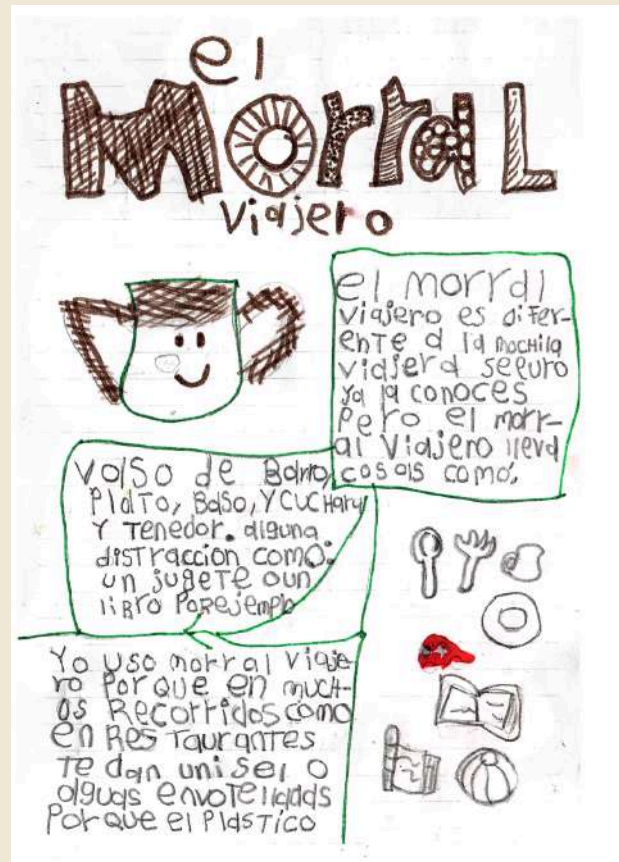 el
MorraL
viajero
el morral
viajero es difer-
ente a la mocHila
viajera seguro
ya la conoces
Pero el morr-
al viajero lleva
cosas como,
Volso de Barro,
PlaTo, Baso, Y CUCHara
Y Tenedor. alguna
disTraccion como:
un jugeTe o un
liBro Por ejemplo
Yo uso morral viaje-
ro Por que en mucH-
os Recorridos como
en Res Taurantes
Te dan unisel o
alguas envoTelladas
Por que el PlasTico